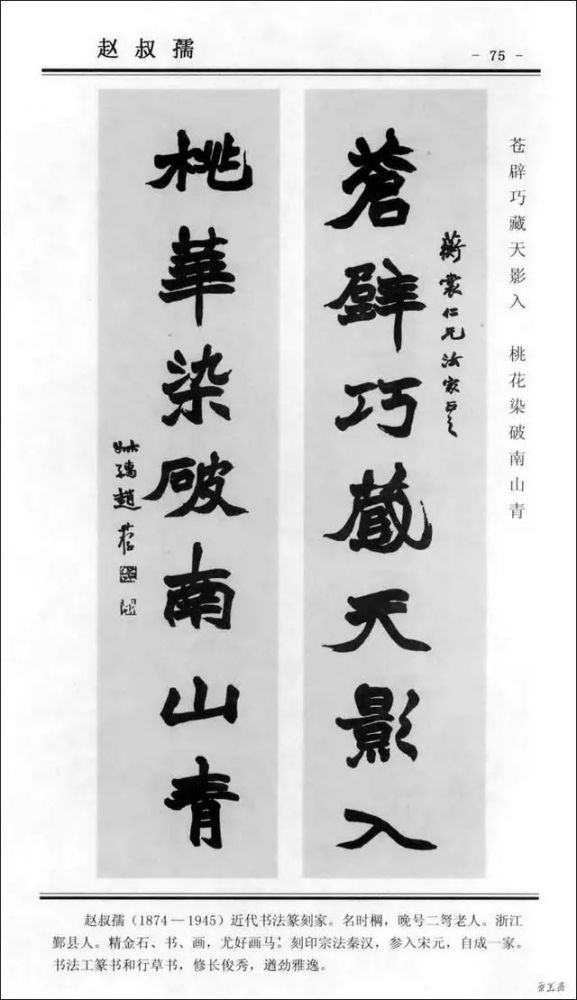 赵叔孺
- 75 -
苍辟巧藏天影入 桃花染破南山青
蒼壁巧藏天影入
桃華染破南山青
叔孺趙
赵叔孺（1874—1945）近代书法篆刻家。名时棡，晚号二弩老人。浙江
鄞县人。精金石、书、画，尤好画马。刻印宗法秦汉，参入宋元，自成一家。
书法工篆书和行草书，修长俊秀，遒劲雅逸。